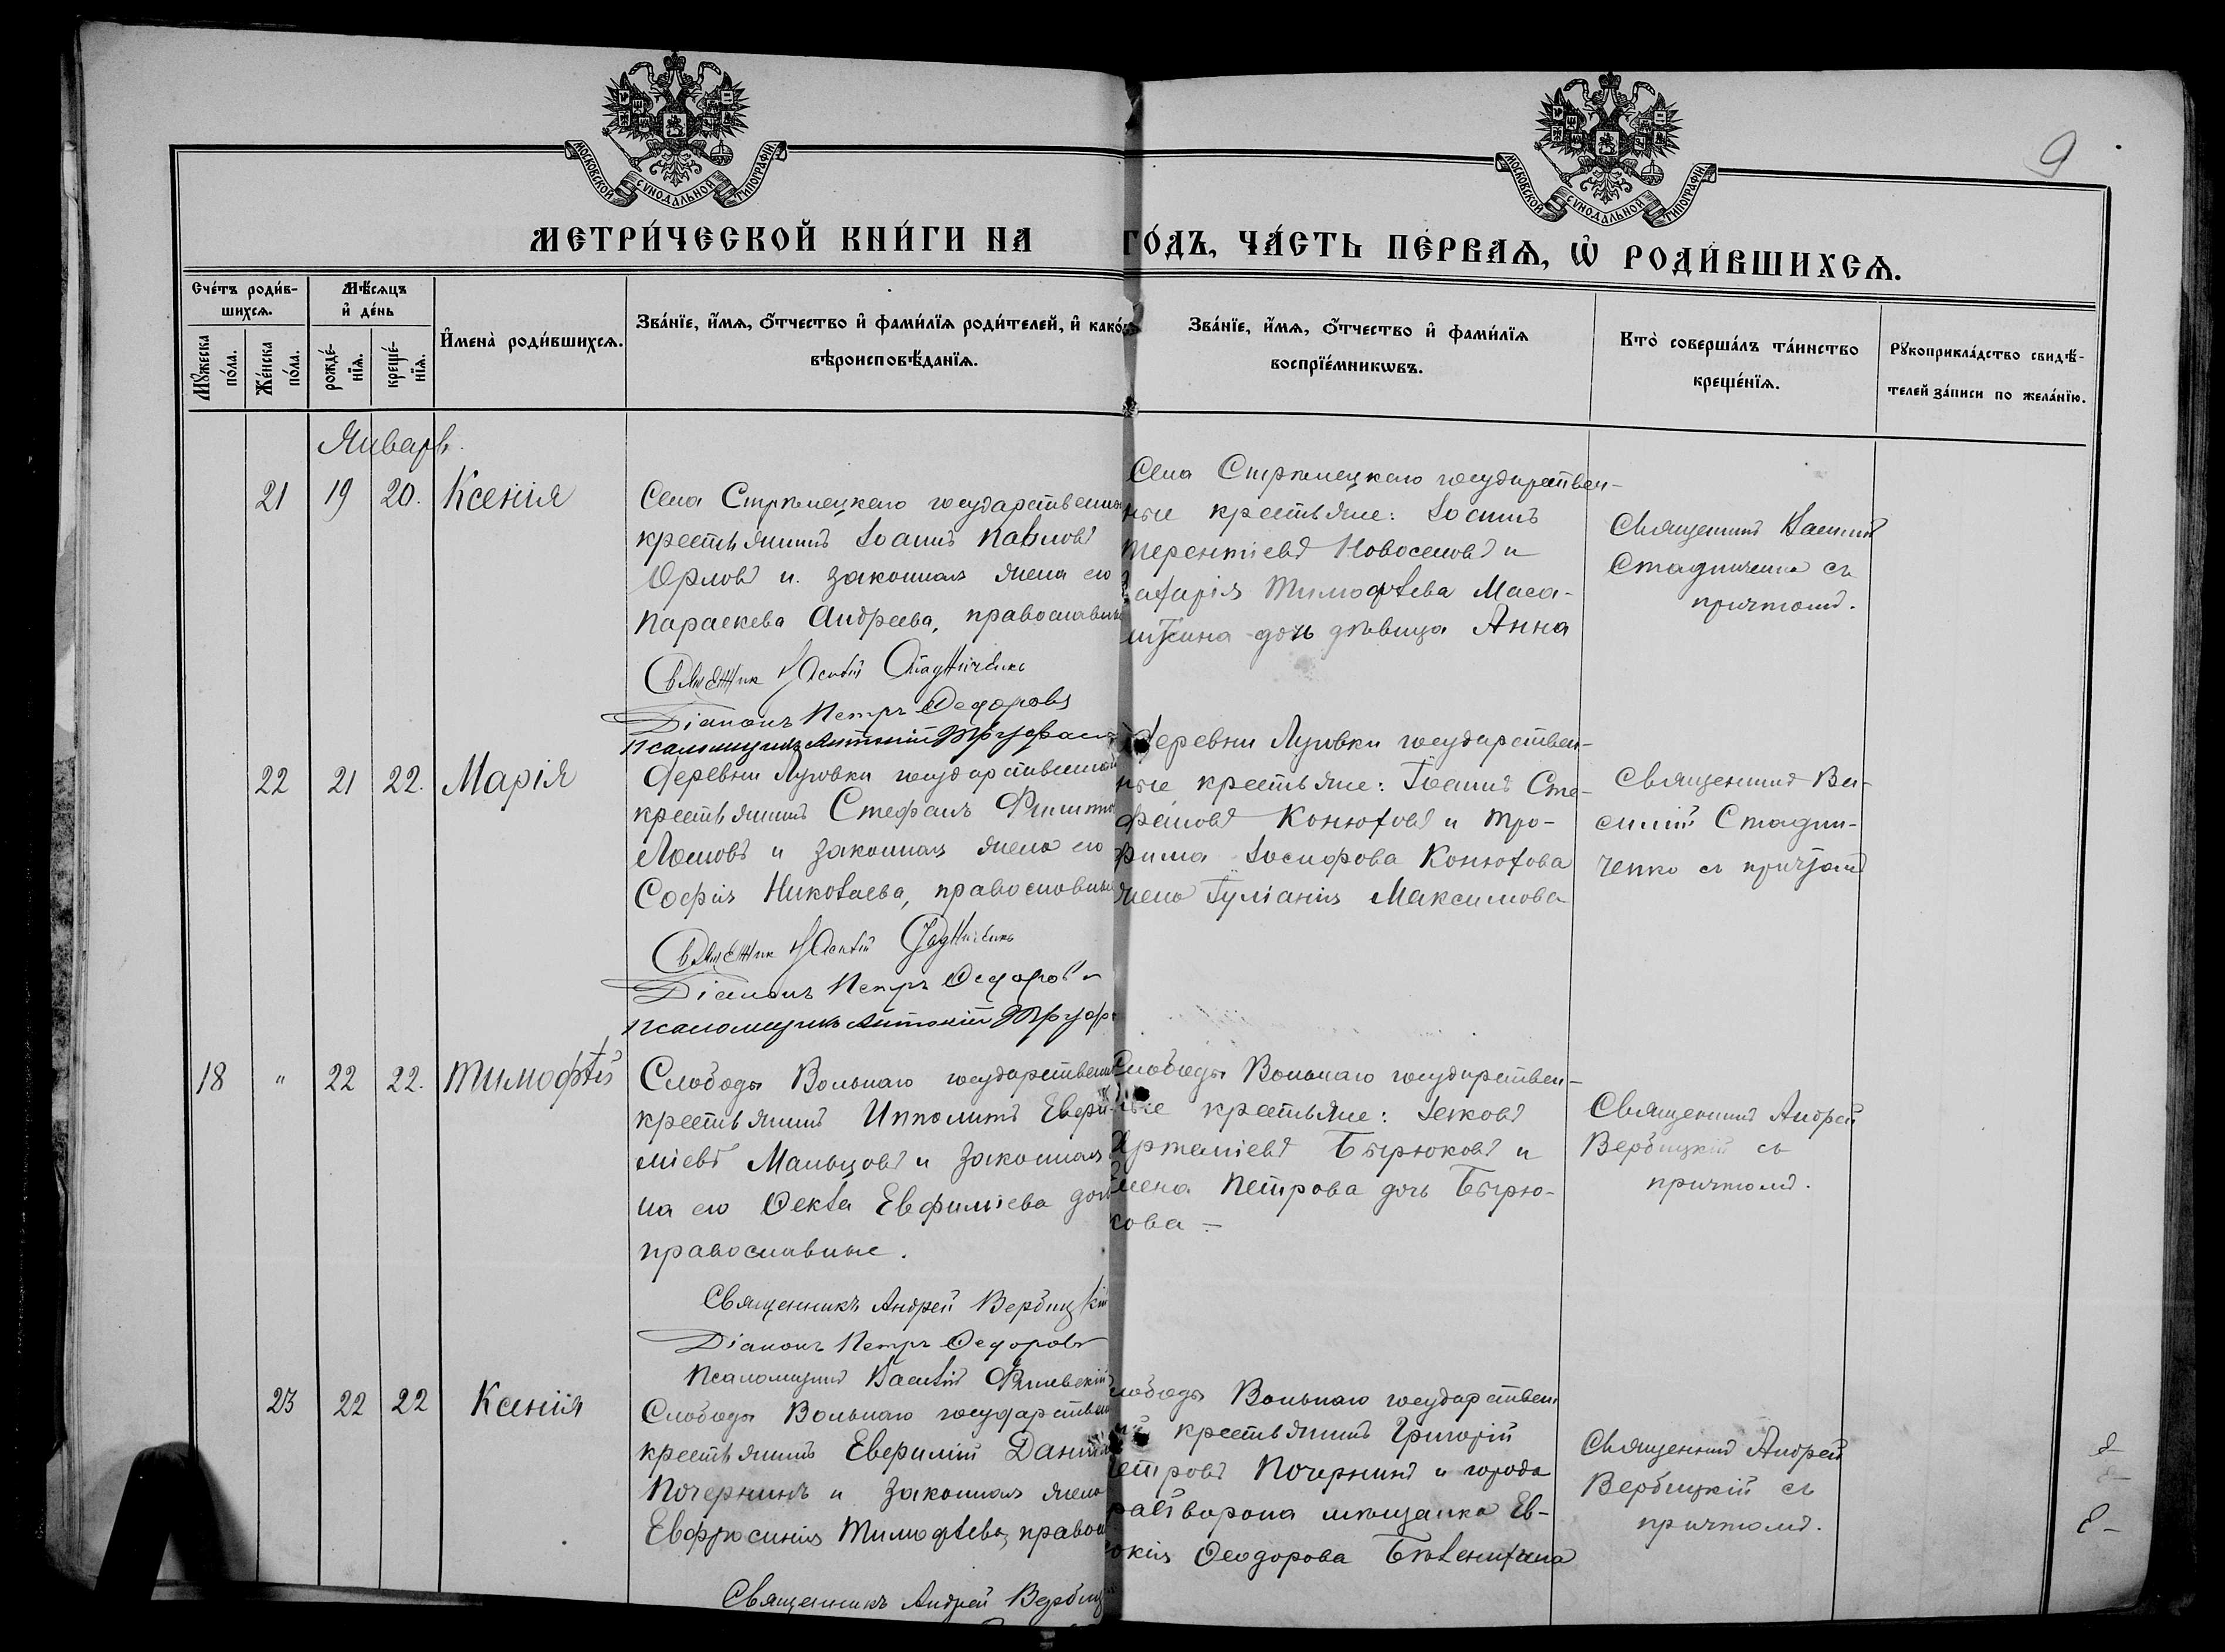 МОСКОВСКОЙ СУНОДАЛЬНОЙ ТИПОГРАФІИ
МОСКОВСКОЙ СУНОДАЛЬНОЙ ТИПОГРАФІИ
9
МЕТРИ́ЧЕСКОЙ КНИ́ГИ НА ГО́ДЪ, ЧА́СТЬ ПЕ́РВАѦ, Ѡ҆ РОДИ́ВШИХСѦ.
Сче́тъ роди́в-
шихсѧ.
Мꙋ́жеска по́ла.
Же́нска по́ла.
Мѣ́сѧцъ
и҆ де́нь
рожде́-
нїѧ.
креще́-
нїѧ.
И҆мена̀ роди́вшихсѧ.
Зва́нїе, и҆́мѧ, ѻ҆́тчество и҆ фами́лїѧ роди́телей, и҆ како́гѡ
вѣроисповѣ́данїѧ.
Зва́нїе, и҆́мѧ, ѻ҆́тчество и҆ фами́лїѧ
воспрїе́мникѡвъ.
Кто̀ соверша́лъ та́инство
креще́нїѧ.
Рꙋкоприкла́дство свидѣ́-
телей за́писи по жела́нїю.
Январь.
21 19 20. Ксенія
Села Стрѣлецкаго государственн
крестьянинъ Іоаннъ Павловъ
Орловъ и законная жена его
Параскева Андреева, православные
Священник Василій Стадниченко
Діаконъ Петръ Ѳедоровъ
Псаломщикъ Антоній
Села Стрѣлецкаго государствен-
ные крестьяне: Іоаннъ
Терентіевъ Новоселовъ и
Захарія Тимоѳѣева
дочь дѣвица Анна
Священникъ Василій
Стадниченко съ
причтомъ.
22 21 22. Марія
Деревни Луговки государственной
крестьянинъ Стефанъ
и законная жена его
Софія Николаева, православные
Священник Василій Стадниченко
Діаконъ Петръ Ѳедоровъ
Псаломщикъ Антоній
Деревни Луговки государствен-
ные крестьяне: Іоаннъ Сте-
фановъ Конюховъ и Тро-
фима Іосифова Конюхова
жена Іуліанія Максимова
Священникъ Ва-
силій Стадни-
ченко съ причтомъ
18 " 22 22. Тимофѣй
Слободы Вольнаго государственн
крестьянинъ Ипполитъ Евфи-
міевъ Мальцовъ и законная
на его Ѳекла Евфиміева дочь
православные.
Священникъ Андрей Вербицкій
Діаконъ Петръ Ѳедоровъ
Псаломщикъ Василій
Слободы Вольнаго государствен-
ные крестьяне: Іаковъ
Артеміевъ Бирюковъ и
Елена Петрова дочь Бирю-
кова -
Священникъ Андрей
Вербицкій съ
причтомъ.
23 22 22 Ксенія
Слободы Вольнаго государствен
крестьянинъ Евфимій
и законная жена
Евфросинія Тимоѳѣева, правос
Священникъ Андрей Вербиц
Слободы Вольнаго государствен
крестьянинъ Григорій
Петровъ и города
мѣщанка Ев-
докія Ѳеодорова
Священникъ Андрей
Вербицкій съ
причтомъ.